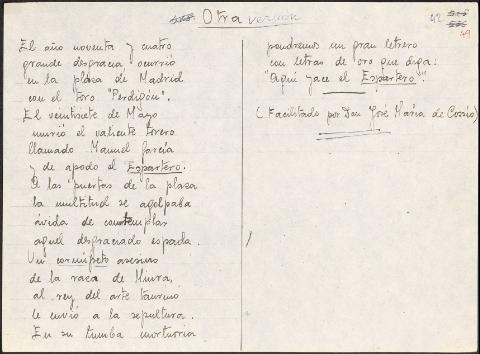 Otra version
42
49
El año noventa y cuatro
grande desgracia ocurrió
en la plaza de Madrid
con el toro "Perdigón".
El veintisiete de Mayo
murió el valiente torero
llamado Manuel García
y de apodo el Espartero.
A las puertas de la plaza
la multitud se agolpaba
ávida de contemplar
aquel desgraciado espada.
Un cornúpeto asesino
de la raza de Miura,
al rey del arte taurino
le envió a la sepultura.
En su tumba mortuoria
pondremos un gran letrero
con letras de oro que diga:
"Aquí yace el Espartero".
(Facilitado por Don José María de Cossío)